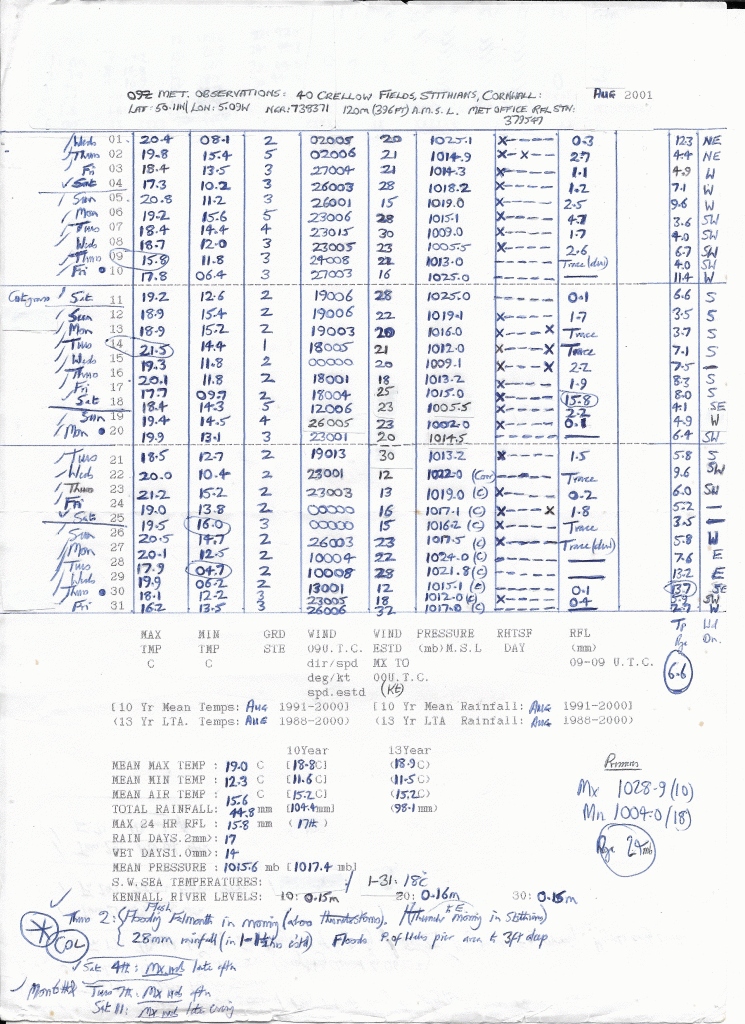 09Z MET. OBSERVATIONS: 40 CRELLOW FIELDS, STITHIANS, CORNWALL: AUG 2001
LAT: 50.11N/ LON: 5.09W NGR: 738371 120m (396FT) A.M.S.L. MET OFFICE RFL STN:
379547
Wed 01. 20.4 08.1 2 02005 20 1025.1 X----- 0.3 12.3 NE
Thur 02 19.8 15.4 5 02006 21 1014.9 X--X--- 2.7 4.4 NE
Fri 03 18.4 13.5 3 27004 21 1014.3 X----- 1.1 4.9 W
Sat 04 17.3 10.2 3 26003 28 1018.2 X----- 1.2 7.1 W
Sun 05 20.8 11.2 3 26001 15 1019.0 X----- 2.5 9.6 W
Mon 06 19.2 15.6 5 23006 28 1015.1 X----- 4.7 3.6 SW
Tues 07 18.4 14.4 4 23015 30 1009.0 X----- 1.7 4.0 SW
Wed 08 18.7 12.0 3 23005 23 1005.5 X----- 2.6 6.7 SW
Thur 09 15.8 11.8 3 24008 22 1013.0 ------ Trace (dew) 4.0 SW
Fri 10 17.8 06.4 3 27003 16 1025.0 ------ — 11.4 W
Sat 11 19.2 12.6 2 19006 28 1025.0 ------ 0.1 6.6 S
Sun 12 18.9 15.4 2 19006 22 1019.1 X----- 1.7 3.5 S
Mon 13 18.9 15.2 2 19003 20 1016.0 X----X Trace 3.7 S
Tues 14 21.5 14.4 1 18005 21 1012.0 X----X Trace 7.1 S
Wed 15 19.3 11.8 2 00000 20 1009.1 X----X 2.2 7.5 —
Thur 16 20.1 11.8 2 18001 18 1013.2 X----- 1.9 8.3 S
Fri 17 17.7 09.7 2 18004 25 1015.0 X----- 15.8 8.0 S
Sat 18 18.4 14.3 5 12006 23 1005.5 X----- 2.2 4.1 SE
Sun 19 19.4 14.5 4 26005 23 1002.0 X----- 0.1 4.9 W
Mon 20 19.9 13.1 3 23001 20 1014.5 ------ — 6.4 SW
Tues 21 18.5 12.7 2 19013 30 1013.2 X----- 1.5 5.8 S
Wed 22 20.0 10.4 2 23001 12 1022.0 (Corr) ------ Trace 9.6 SW
Thur 23 21.2 15.2 2 23003 13 1019.0 (C) X----- 0.2 6.0 SW
Fri 24 19.0 13.8 2 00000 16 1017.1 (C) X----X 1.8 5.2 —
Sat 25 19.5 16.0 3 00000 15 1016.2 (C) X----- Trace 3.5 —
Sun 26 20.5 14.7 2 26003 23 1017.5 (C) ------ Trace (dew) 5.8 W
Mon 27 20.1 12.5 2 10004 22 1024.0 (C) ------ — 7.6 E
Tues 28 17.9 04.7 2 10008 28 1021.8 (C) ------ — 13.2 E
Wed 29 19.9 06.2 2 13001 12 1015.1 (C) ------ 0.1 13.7 SE
Thur 30 18.1 12.2 3 23005 18 1012.0 (C) X----- 0.4 5.9 SW
Fri 31 16.2 13.5 3 26006 32 1017.0 (C) ------ — 2.7 W
MAX MIN GRD WIND WIND PRESSURE RHTSF RFL Tp Wd
TMP TMP STE 09U.T.C. ESTD (mb)M.S.L DAY (mm) Rge Dn.
C C dir/spd MX TO 09-09 U.T.C.
deg/kt 00U.T.C. 6.6
spd.estd (Kt)
[10 Yr Mean Temps: AUG 1991-2000] [10 Yr Mean Rainfall: AUG 1991-2000]
(13 Yr LTA. Temps: AUG 1988-2000) (13 Yr LTA Rainfall: AUG 1988-2000)
10Year 13Year
MEAN MAX TEMP : 19.0 C [18.8C] (18.9C)
MEAN MIN TEMP : 12.3 C [11.6C] (11.5C)
MEAN AIR TEMP : 15.6 C [15.2C] (15.2C)
TOTAL RAINFALL: 44.8 mm [104.4mm] (98.1mm)
MAX 24 HR RFL : 15.8 mm (17th)
RAIN DAYS.2mm): 17
WET DAYS1.0mm): 14
MEAN PRESSURE : 1015.6 mb [1017.4 mb]
S.W.SEA TEMPERATURES: / 1-31: 18°C
KENNALL RIVER LEVELS: 10: 0.15m 20: 0.16m 30: 0.15m
Pressure
Mx 1028.9 (10)
Mn 1004.0 (18)
Rge 24mb
COL
Thur 2: Flash Flooding Falmouth in morning
28mm rainfall (in 1-1½ hrs est'd) Floods P. of Wales pier area to 3ft deep
Sat 4th: Mx wd late aftn
Tues 7th: Mx wd aftn
Sat 11: Mx wd late evening